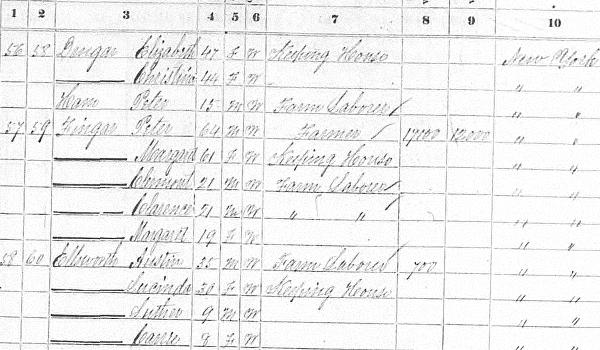 1 2 3 4 5 6 7 8 9 10
56 58 Dingar Elizabeth 47 F W Keeping House New York
—— Christina 44 F W " "
Ham Peter 15 M W Farm Laborer " "
57 59 Fingar Peter 64 M W Farmer 17100 12000 " "
—— Margaret 61 F W Keeping House " "
—— 21 M W Farm Laborer " "
—— Clarence 21 M W " " " "
—— Margaret 19 F W " "
58 60 Ellsworth Austin 35 M W Farm Laborer 700 " "
—— Lucinda 30 F W Keeping House " "
—— Luther 9 M W " "
—— F W " "